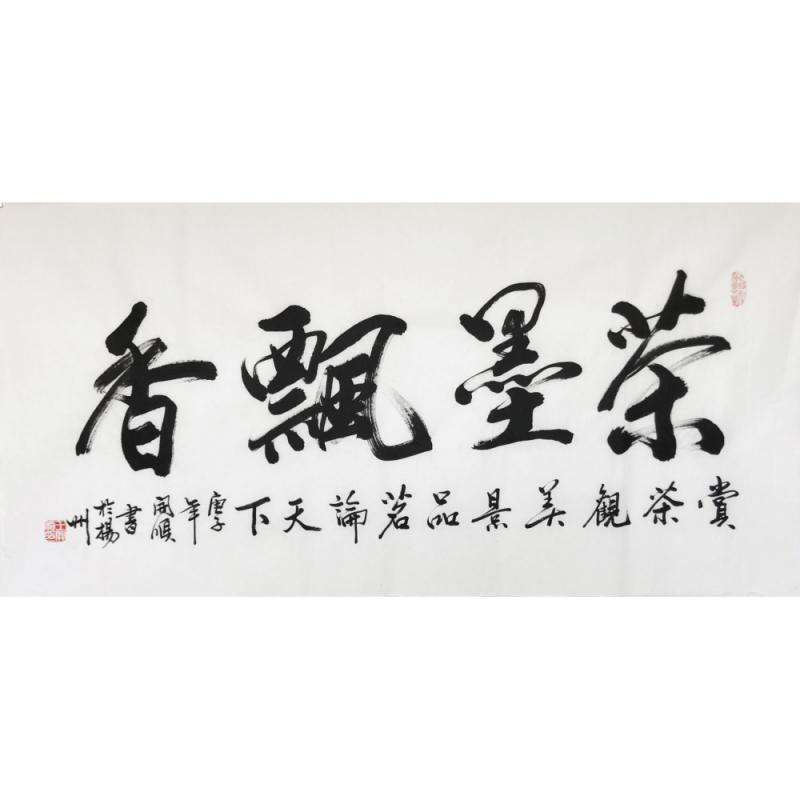 茶墨飄香
賞茶觀美景品茗論天下
庚子年開順書於揚州